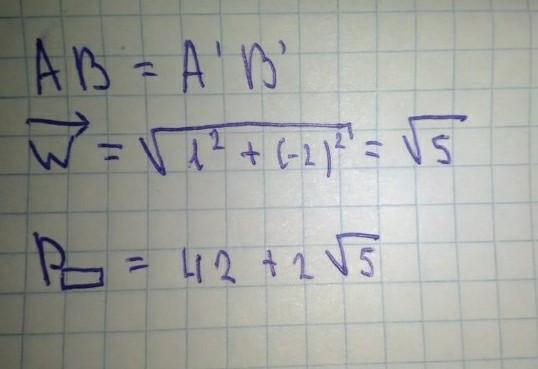 AB = A' B'
\overrightarrow{W} = √(1² + (-2)²) = √5
P▭ = 42 + 2√5